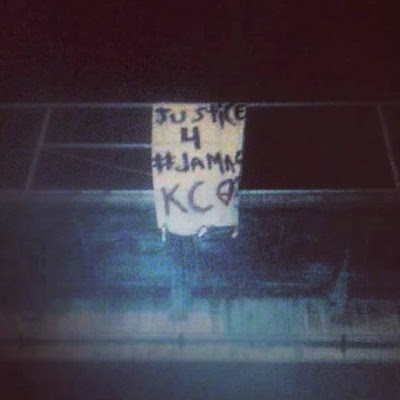 JUSTICE
4
#JAMAR
KC